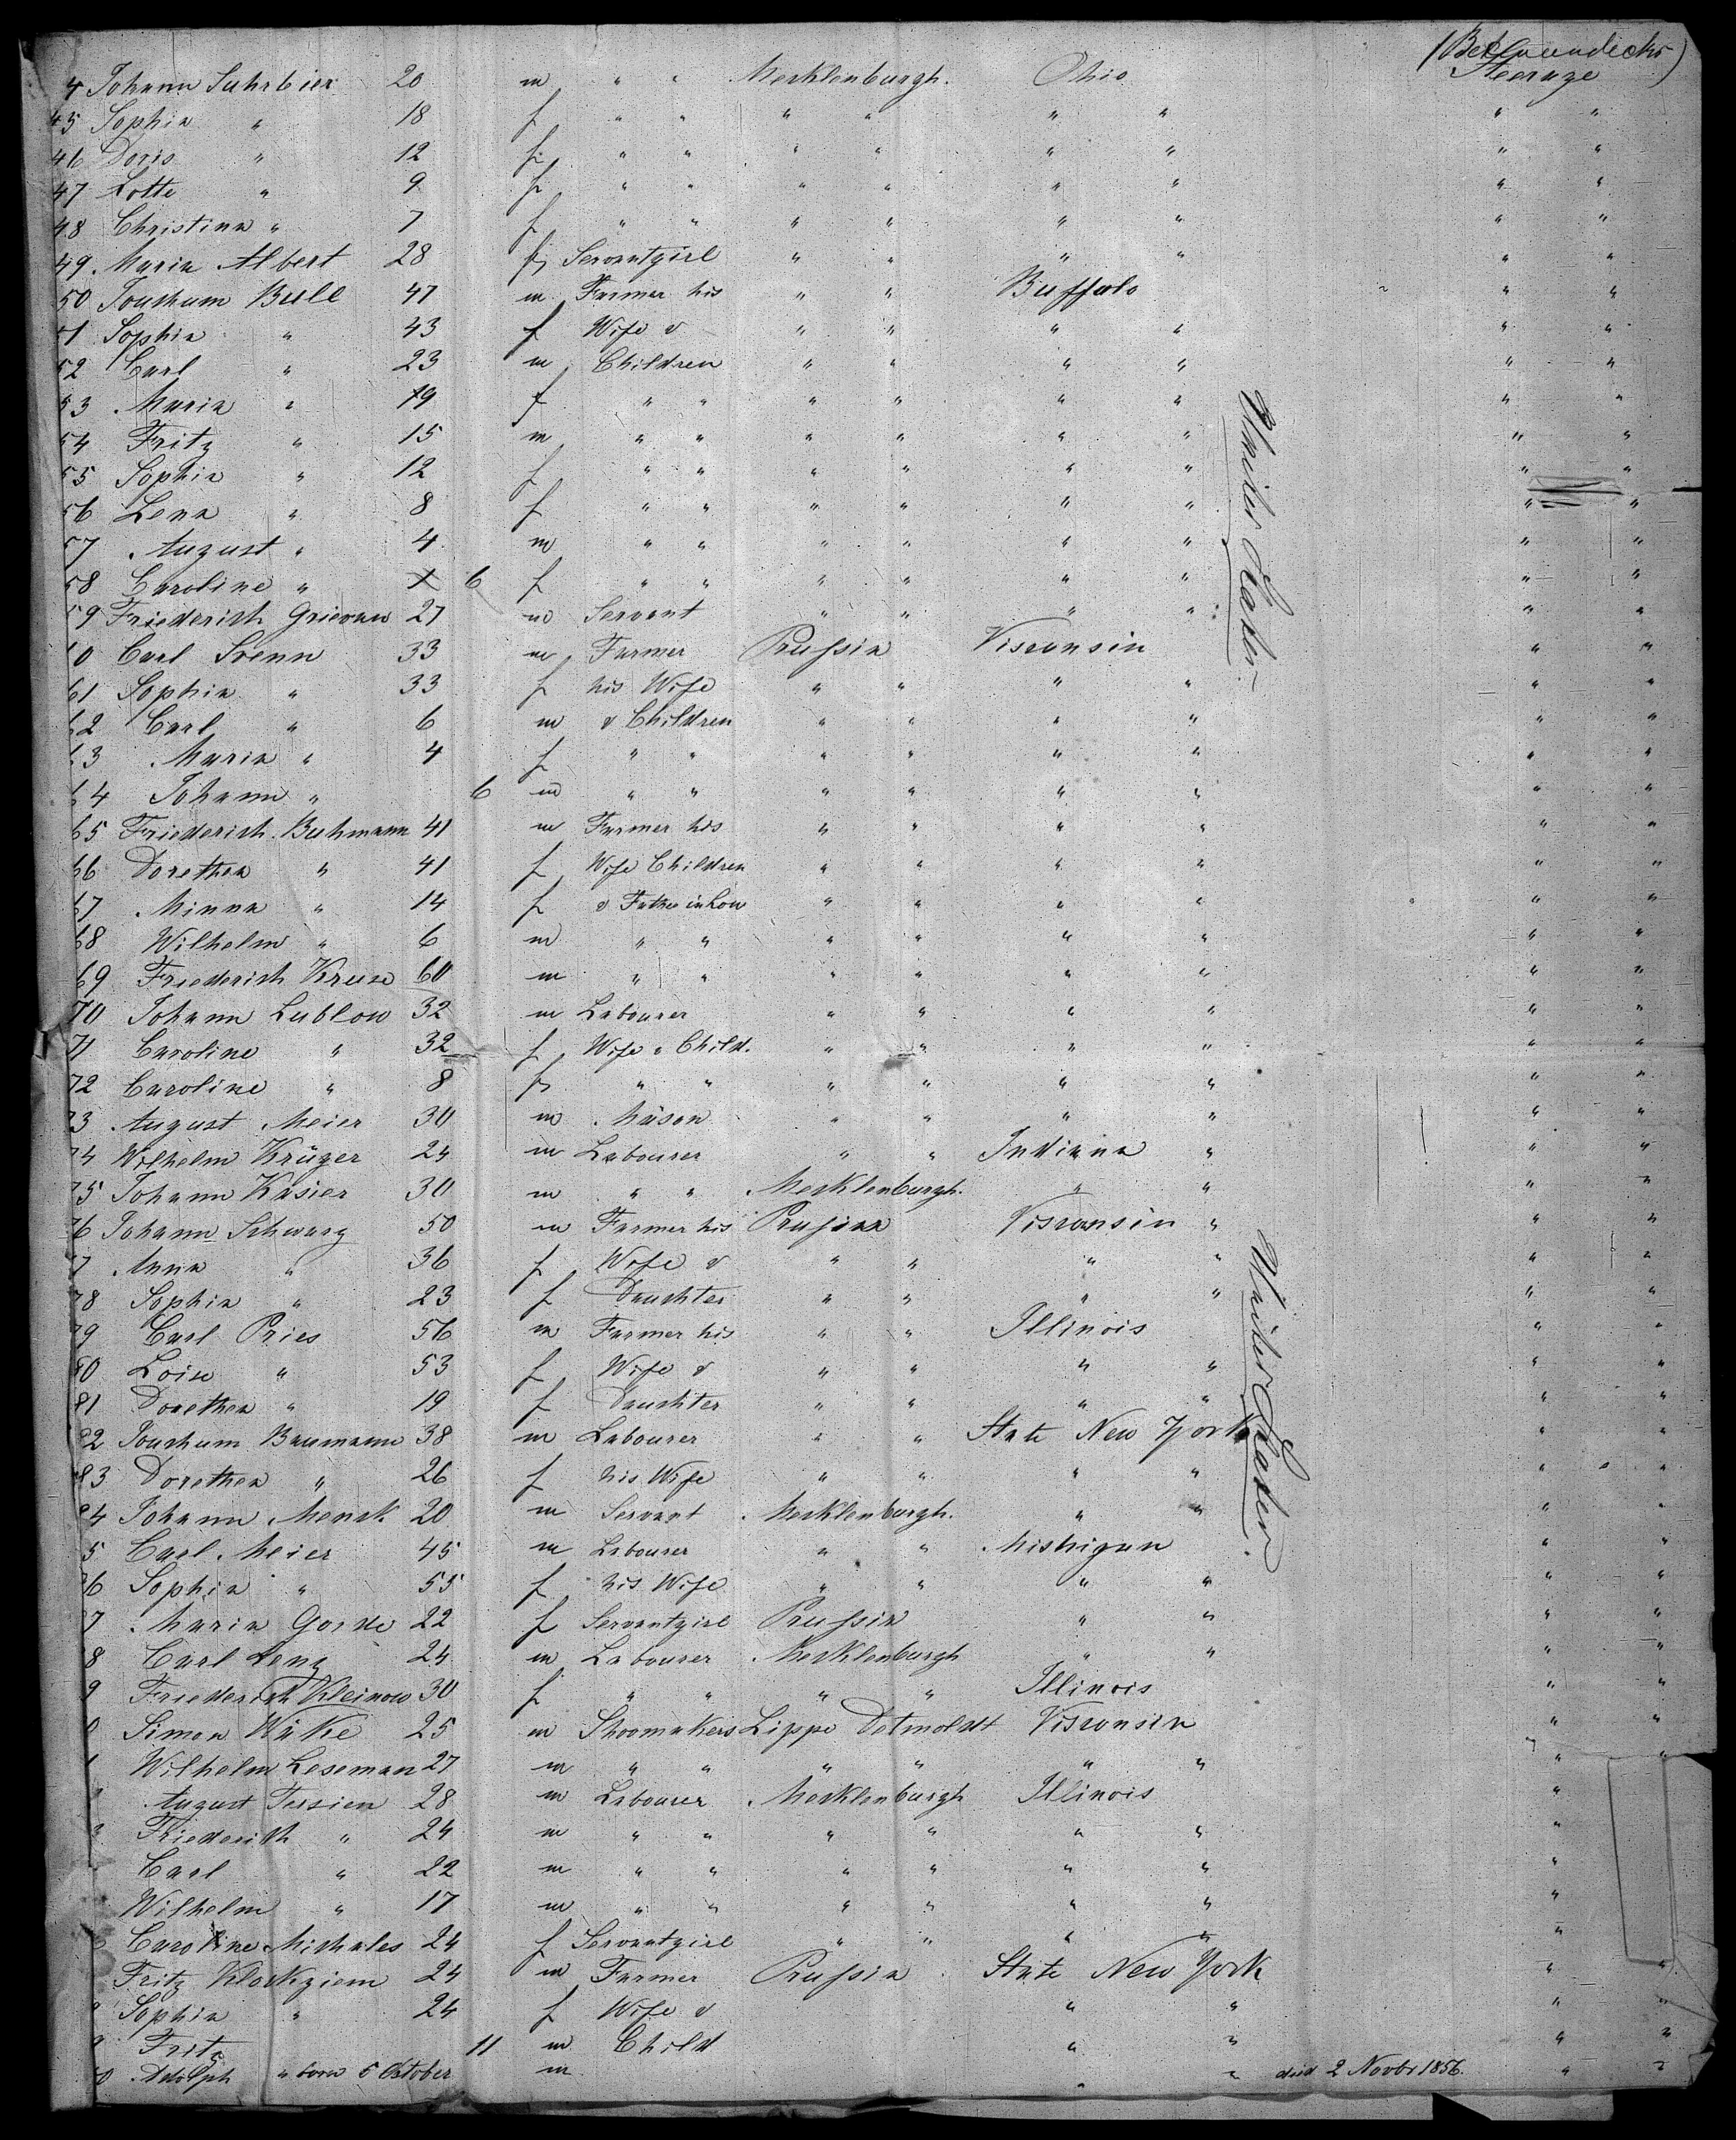 Steerage
4 Johann Suhrbier 20 m " " Mecklenburgh. Ohio
45 Sophia " 18 f " " " " " " " "
46 Doris " 12 f " " " " " " " "
47 Lotte " 9 f " " " " " " " "
48 Christina " 7 f " " " " " " " "
49 Maria Albert 28 f Servantgirl " " " " " "
50 Joachum Bull 47 m Farmer his " " Buffalo " "
51 Sophia " 43 f Wife & " " " " " "
52 Carl " 23 m Children " " " " " "
53 Maria " 19 f " " " " " " " "
54 Fritz " 15 m " " " " " " " "
55 Sophia " 12 f " " " " " " " "
56 Lena " 8 f " " " " " " " "
57 August " 4 m " " " " " " " "
58 Caroline " 6 f " " " " " " " "
59 Friederich 27 m Servant " " " " " "
60 Carl 33 m Farmer Prussia Visconsin " "
61 Sophia " 33 f his Wife " " " " " "
62 Carl " 6 m & Children " " " " " "
63 Maria " 4 f " " " " " " " "
64 Johann " 6 m " " " " " " " "
65 Friederich Buhmann 41 m Farmer his " " " " " "
66 Dorethea " 41 f Wife Children " " " " " "
67 Minna " 14 f & Father in Low " " " " " "
68 Wilhelm " 6 m " " " " " " " "
69 Friederich Kruse 60 m " " " " " " " "
70 Johann Lublow 32 m Labourer " " " " " "
71 Caroline " 32 f Wife & Child. " " " " " "
72 Caroline " 8 f " " " " " " " "
73 August Meier 30 m Mason " " " " " "
74 Wilhelm Krüger 24 m Labourer " " Indiana " " "
75 Johann Kasier 30 m " " Mecklenburgh. " " " "
76 Johann Schwarz 50 m Farmer his Prussia Visconsin " " "
77 Anna " 36 f Wife & " " " " " "
78 Sophia " 23 f Dauchter " " " " " "
79 Carl Pries 56 m Farmer his " " Illinois " "
80 Loise " 53 f Wife & " " " " " "
81 Dorethea " 19 f Dauchter " " " " " "
82 Joachum Baumann 38 m Labourer " " State New York " "
83 Dorethea " 26 f his Wife " " " " " "
84 Johann Mensk 20 m Servant Mecklenburgh. " " " "
5 Carl Meier 45 m Labourer " " Michigan " "
86 Sophia " 55 f his Wife " " " " " "
7 Maria Gorde 22 f Servantgirl Prussia " " " "
8 Carl Lenz 24 m Labourer Mecklenburgh " " " "
9 Friederich Kleinow 30 f " " " " Illinois " "
0 Simon Wüke 25 m Shoomakers Lippe Detmoldt Visconsin " "
1 Wilhelm Leseman 27 m " " " " " " " "
August Tessien 28 m Labourer Mecklenburgh Illinois "
Friederich " 24 m " " " " " " "
Carl " 22 m " " " " " " "
Wilhelm " 17 m " " " " " " "
Caroline Michales 24 f Servantgirl " " " " "
Fritz Klockziem 24 m Farmer Prussia State New York " "
Sophia " 24 f Wife & " " " "
9 Fritz 11 m Child " " " "
0 Adolph " born 5 October m " " died 2 Novbr 1856. " "
United States.
United States.